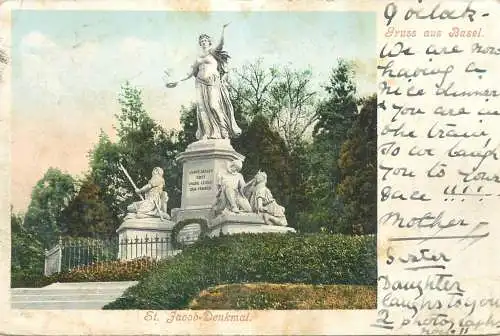 9 o'clock
Gruss aus Basel.
We are now
having a
nice dinner
& you are in
the train,
So we laugh
you to your
face !!!!
Mother
Sister
Daughter
laughs to you
2 photography
St. Jacob-Denkmal.